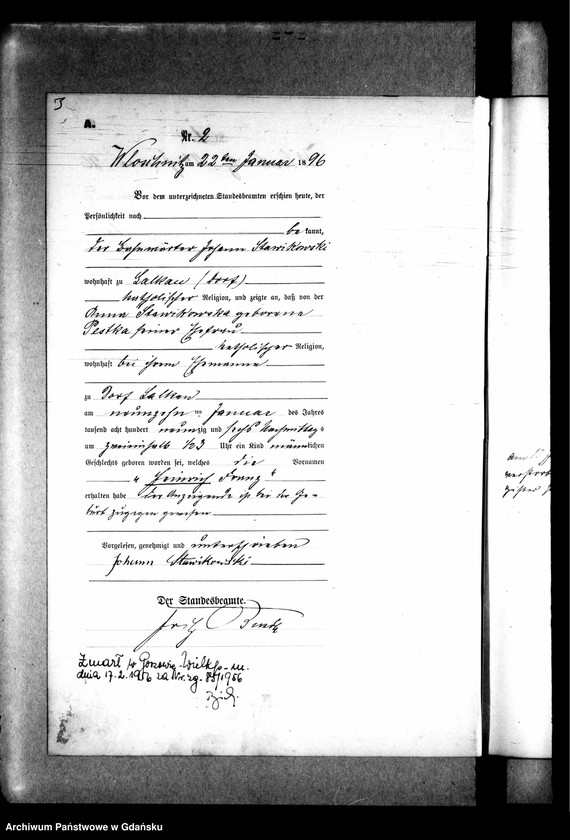 3
A.
Nr. 2
Wloschnitz am 22ten Januar 1896
Vor dem unterzeichneten Standesbeamten erschien heute, der
Persönlichkeit nach
be kannt,
der Bahnwärter Johann Stawikowski
wohnhaft zu Lalkau (Dorf)
katholischer Religion, und zeigte an, daß von der
Anna Stawikowska geborene
Pestka seiner Ehefrau
katholischer Religion,
wohnhaft bei ihrem Ehemanne
zu Dorf Lalkau
am neunzehn ten Januar des Jahres
tausend acht hundert neunzig und sechs Nachmittags
um zweieinhalb 1/2 3 Uhr ein Kind männlichen
Geschlechts geboren worden sei, welches die Vornamen
„Heinrich Franz“
erhalten habe der Anzeigende ist bei der Ge-
burt zugegen gewesen
Vorgelesen, genehmigt und unterschrieben
Johann Stawikowski
Der Standesbeamte.
Zmarł w Gorzowie-Wielkp.
dnia 17.2.1956 za Nr. zg. 85/1956
Archiwum Państwowe w Gdańsku